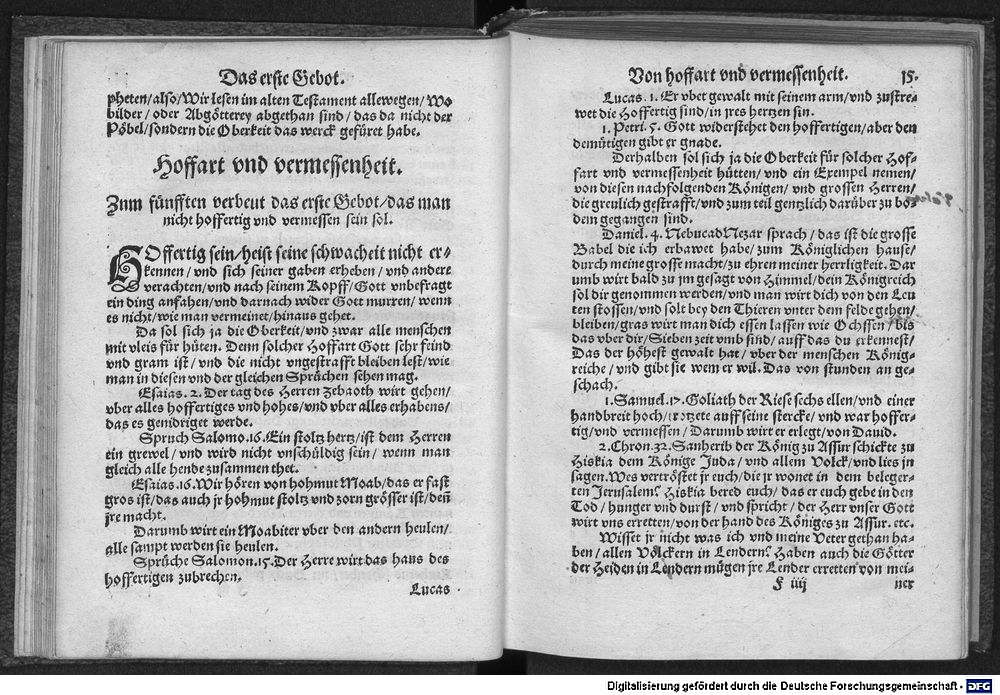 Das erste Gebot.
pheten/also/Wir lesen im alten Testament allewegen/Wo
bilder/ oder Abgötterey abgethan sind/ das da nicht der
Pöbel/sondern die Oberkeit das werck gefüret habe.
Hoffart vnd vermessenheit.
Zum fünfften verbeut das erste Gebot/das man
nicht hoffertig vnd vermessen sein sol.
HOffertig sein/heist seine schwacheit nicht er-
kennen/vnd sich seiner gaben erheben/vnd andere
verachten/vnd nach seinem Kopff/Gott vnbefragt
ein ding anfahen/vnd darnach wider Gott murren/ wenn
es nicht/wie man vermeinet/hinaus gehet.
Da sol sich ja die Oberkeit/vnd zwar alle menschen
mit vleis für hüten. Denn solcher Hoffart Gott sehr feind
vnd gram ist/ vnd die nicht vngestrafft bleiben lest/wie
man in diesen vnd der gleichen Sprüchen sehen mag.
Esaias. 2. Der tag des Herren Zebaoth wirt gehen/
vber alles hoffertiges vnd hohes/vnd vber alles erhabens/
das es genidriget werde.
Spruch Salomo.16.Ein stoltz hertz/ist dem Herren
ein grewel/ vnd wird nicht vnschüldig sein/ wenn man
gleich alle hende zusammen thet.
Esaias.16.Wir hören von hohmut Moab/das er fast
gros ist/das auch jr hohmut stoltz vnd zorn grösser ist/deñ
jre macht.
Darumb wirt ein Moabiter vber den andern heulen/
alle sampt werden sie heulen.
Sprüche Salomon.15.Der Herre wirt das haus des
hoffertigen zubrechen.
Lucas
Von hoffart vnd vermessenheit. 15.
Lucas. 1. Er vbet gewalt mit seinem arm/vnd zustre-
wet die Hoffertig sind/in jres hertzen sin.
1. Petri. 5. Gott widerstehet den hoffertigen/aber den
demütigen gibt er gnade.
Derhalben sol sich ja die Oberkeit für solcher Hof-
fart vnd vermessenheit hütten/ vnd ein Exempel nemen/
von diesen nachfolgenden Königen/ vnd grossen Herren/
die greulich gestrafft/vnd zum teil gentzlich darüber zu bo-
dem gegangen sind.
Daniel. 4. NebucadNezar sprach/ das ist die grosse
Babel die ich erbawet habe/ zum Königlichen hause/
durch meine grosse macht/zu ehren meiner herrligkeit. Dar
umb wirt bald zu jm gesagt von Himmel/dein Königreich
sol dir genommen werden/vnd man wirt dich von den Leu
ten stossen/vnd solt bey den Thieren vnter dem felde gehen/
bleiben/gras wirt man dich essen lassen wie Ochssen/ bis
das vber dir/Sieben zeit vmb sind/ auff das du erkennest/
Das der höhest gewalt hat/ vber der menschen König-
reiche/ vnd gibt sie wem er wil. Das von stunden an ge-
schach.
1.Samuel.17.Goliath der Riese sechs ellen/vnd einer
handbreit hoch/trotzete auff seine stercke/ vnd war hoffer-
tig/vnd vermessen/ Darumb wirt er erlegt/von Dauid.
2.Chron.32.Sanherib der König zu Assur schickte zu
Hiskia dem Könige Juda/ vnd allem Volck/vnd lies jn
sagen. Wes vertröstet jr euch/die jr wonet in dem beleger-
ten Jerusalem? Hiskia bered euch/ das er euch gebe in den
Tod/ hunger vnd durst/ vnd spricht/ der Herr vnser Gott
wirt vns erretten/von der hand des Königes zu Assur. etc.
Wisset jr nicht was ich vnd meine Veter gethan ha-
ben/ allen Völckern in Lendern? Haben auch die Götter
der Heiden in Lendern mügen jre Lender erretten von mei-
F iiij ner
Digitalisierung gefördert durch die Deutsche Forschungsgemeinschaft - DFG